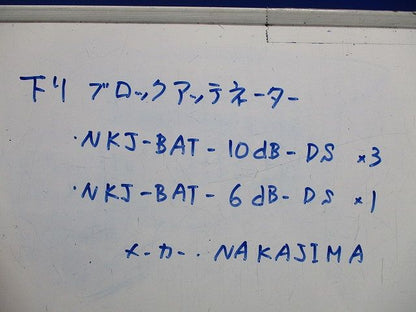 下り ブロックアッテネーター
・NKJ-BAT-10dB-DS ×3
・NKJ-BAT-6dB-DS ×1
メーカー・NAKAJIMA